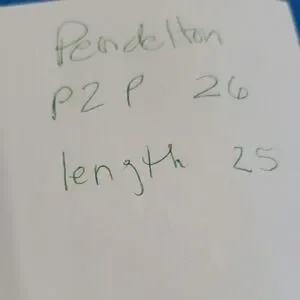 Pendelton
P2P 26
length 25